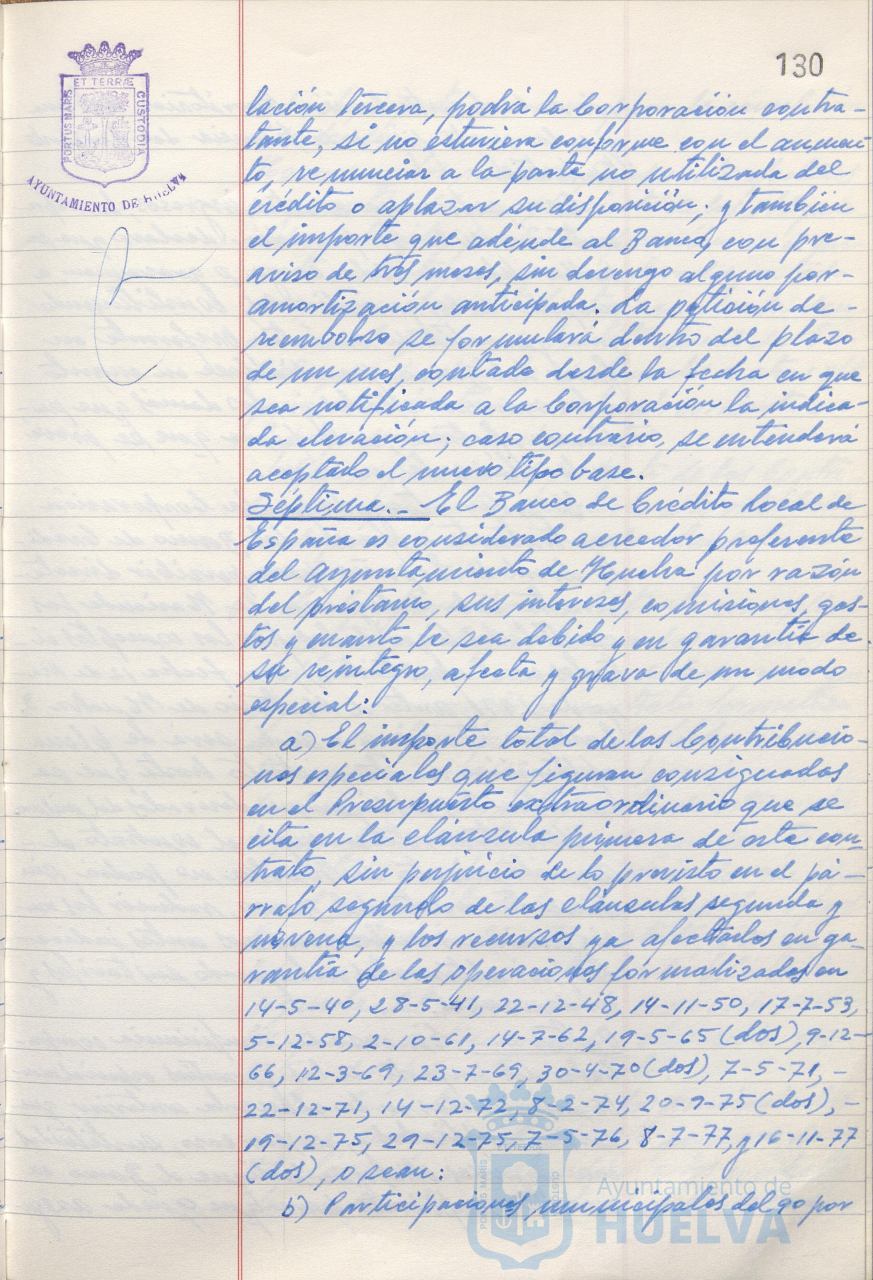 130
ET TERRÆ
PORTUS MARIS
CUSTODIA
AYUNTAMIENTO DE HUELVA
lación tercera, podrá la Corporación contra-
tante, si no estuviera conforme con el aumen-
to, renunciar a la parte no utilizada del
crédito o aplazar su disposición; y también
el importe que adende al Banco, con pre-
aviso de tres meses, sin devengo alguno por-
amortización anticipada. La petición de-
reembolso se formulará dentro del plazo
de un mes, contado desde la fecha en que
sea notificada a la Corporación la indica-
da elevación; caso contrario, se entenderá
aceptado el nuevo tipo base.
Séptima.- El Banco de Crédito Local de
España es considerado acreedor preferente
del Ayuntamiento de Huelva por razón
del préstamo, sus intereses, comisiones, gas-
tos y cuanto le sea debido y en garantía de
su reintegro, afecta y grava de un modo
especial:
a) El importe total de las Contribucio-
nes especiales que figuran consignadas
en el Presupuesto extraordinario que se
cita en la cláusula primera de este con-
trato, sin perjuicio de lo previsto en el pá-
rrafo segundo de las cláusulas segunda y
novena, y los recursos ya afectados en ga-
rantía de las operaciones formalizadas en
14-5-40, 28-5-41, 22-12-48, 14-11-50, 17-7-53,
5-12-58, 2-10-61, 14-7-62, 19-5-65 (dos), 9-12-
66, 12-3-69, 23-7-69, 30-4-70 (dos), 7-5-71,-
22-12-71, 14-12-72, 8-2-74, 20-9-75 (dos),-
19-12-75, 29-12-75, 7-5-76, 8-7-77, y 16-11-77
(dos), o sean:
b) Participaciones municipales del 90 por
Ayuntamiento de
HUELVA